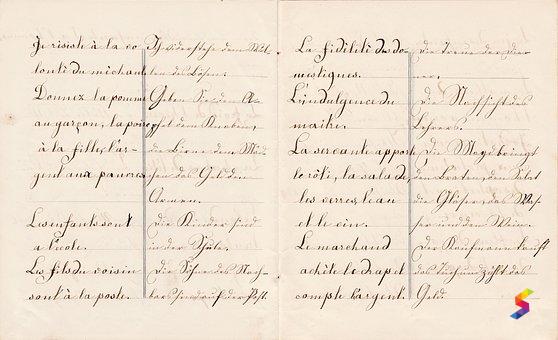 Je risiste à la vo
lonté du michant
Donnez la pomme
au garçon, la poire
à la fille, l'ar-
gent aux pauvres
Les enfants sont
a l'ecole.
Les fils du voisin
sont à la poste.
Ich widerstehe dem Wil
len des Bösen.
Geben Sie den A-
pfel dem Knaben,
die Birne dem Mäd
chen das Geld den
Armen.
Die Kinder sind
in der Schule.
Die Söhne des Nach-
bars sind auf der Post.
La fidélité des do
mestiques.
L'indulgence du
maitre.
La servante apport
le rôti, la salade,
les verres, l'eau
et le vin.
Le marchand
achète le drap et
compte l'argent.
Die Treue der Die
ner.
Die Nachsicht des
Lehrers.
Die Magd bringt
den Braten, den Salat
die Gläser, das Was
ser und den Wein.
Der Kaufmann kauft
das Tuch und zählt das
Geld.